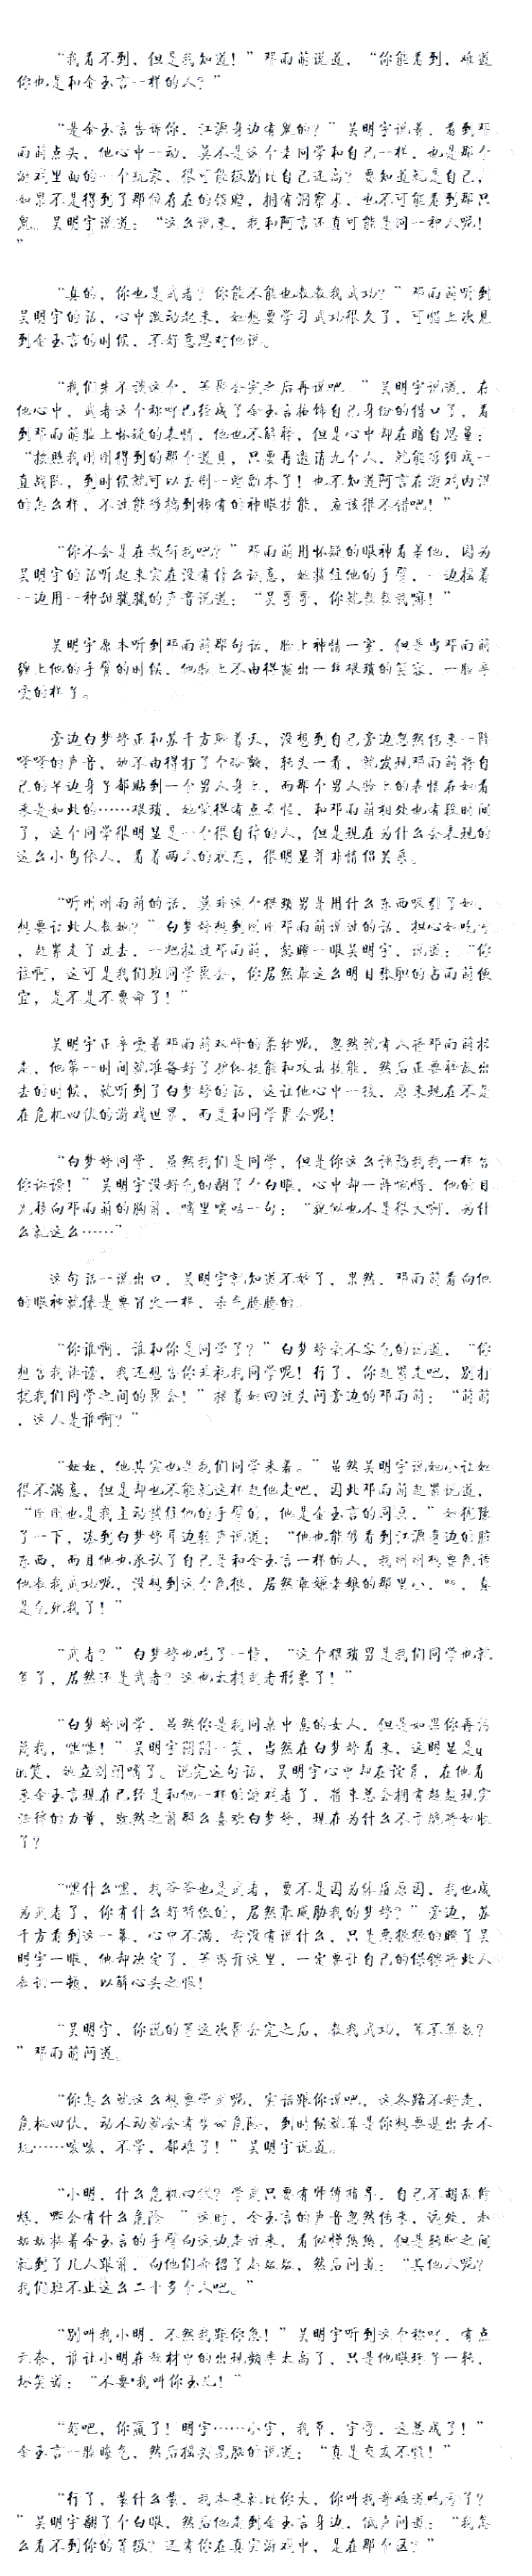 “我看不到，但是我知道！”邓雨萌说道，“你能看到，难道
你也是和金玉言一样的人？”
“是金玉言告诉你，江源身边有鬼的？”吴明宇说着，看到邓
雨萌点头，他心中一动，莫不是这个老同学和自己一样，也是那个
游戏里面的一个玩家，很可能级别比自己还高？要知道就是自己，
如果不是得到了那位存在的领赠，拥有洞察术，也不可能看到那只
鬼。吴明宇说道：“这么说来，我和阿言还真可能是同一种人呢！
”
“真的，你也是武者？你能不能也教教我武功？”邓雨萌听到
吴明宇的话，心中激动起来，她想要学习武功很久了，可惜上次见
到金玉言的时候，不好意思对他说。
“我们先不谈这个，等聚会完之后再说吧。”吴明宇说道，在
他心中，武者这个称呼已经成了金玉言掩饰自己身份的借口了，看
到邓雨萌脸上怀疑的表情，他也不解释，但是心中却在暗自思量：
“按照我刚刚得到的那个道具，只要再邀请九个人，就能够组成一
直战队，到时候就可以去刷一些副本了！也不知道阿言在游戏内混
的怎么样，不过能够搞到稀有的神眼技能，应该很不错吧！”
“你不会是在敷衍我吧？”邓雨萌用怀疑的眼神看着他，因为
吴明宇的话听起来实在没有什么诚意，她搂住他的手臂，一边摇着
一边用一种甜腻腻的声音说道：“吴哥哥，你就教教我嘛！”
吴明宇原本听到邓雨萌那句话，脸上神情一窒，但是当邓雨萌
缠上他的手臂的时候，他脸上不由得露出一丝猥琐的笑容，一脸享
受的样子。
旁边白梦婷正和苏千方聊着天，没想到自己旁边忽然传来一阵
嗲嗲的声音，她不由得打了个冷颤，转头一看，就发现邓雨萌将自
己的半边身子都贴到一个男人身上，而那个男人脸上的表情在她看
来是如此的……猥琐，她觉得有点奇怪，和邓雨萌相处也有段时间
了，这个同学很明显是一个很自得的人，但是现在为什么会表现的
这么小鸟依人，看着两人的状态，很明显并非情侣关系。
“听刚刚雨萌的话，莫非这个猥琐男是用什么东西吸引了她，
想要让此人教她？”白梦婷想到刚刚邓雨萌说过的话，担心她吃亏
，赶紧走了过去，一把拉过邓雨萌，怒瞪一眼吴明宇，说道：“你
谁啊，这可是我们班同学聚会，你居然敢这么明目张胆的占雨萌便
宜，是不是不要命了！”
吴明宇正享受着邓雨萌双峰的柔软呢，忽然就有人将邓雨萌拉
走，他第一时间就准备好了护体技能和攻击技能，然后正要释放出
去的时候，就听到了白梦婷的话，这让他心中一缓，原来现在不是
在危机四伏的游戏世界，而是和同学聚会呢！
“白梦婷同学，虽然我们是同学，但是你这么诽谤我我一样告
你诽谤！”吴明宇没好气的翻了个白眼，心中却一阵惋惜，他的目
光移向邓雨萌的胸前，嘴里嘀咕一句：“貌似也不是很大啊，为什
么就这么……”
这句话一说出口，吴明宇就知道不妙了，果然，邓雨萌看向他
的眼神就像是要冒火一样，杀气腾腾的。
“你谁啊，谁和你是同学了？”白梦婷毫不客气的说道，“你
想告我诽谤，我还想告你非礼我同学呢！行了，你赶紧走吧，别打
扰我们同学之间的聚会！”接着她回过头问旁边的邓雨萌：“萌萌
，这人是谁啊？”
“婷婷，他其实也是我们同学来着。”虽然吴明宇说她小让她
很不满意，但是却也不能就这样赶他走吧，因此邓雨萌赶紧说道，
“刚刚也是我主动搂住他的手臂的，他是金玉言的同桌，”她犹豫
了一下，凑到白梦婷耳边轻声说道：“他也能够看到江源身边的脏
东西，而且他也承认了自己是和金玉言一样的人，我刚刚想要色诱
他教我武功呢，没想到这个色狼，居然敢嫌老娘的那里小，哼，真
是气死我了！”
“武者？”白梦婷也吃了一惊，“这个猥琐男是我们同学也就
算了，居然还是武者？这也太损武者形象了！”
“白梦婷同学，虽然你是我同桌中意的女人，但是如果你再污
蔑我，嘿嘿！”吴明宇阴阴一笑，当然在白梦婷看来，这明显是
笑，她立刻闭嘴了。说完这句话，吴明宇心中却在诧异，在他看
来金玉言现在已经是和他一样的游戏者了，将来总会拥有超越现实
法律的力量，既然之前那么喜欢白梦婷，现在为什么不干脆将她收
了？
“嘿什么嘿，我爷爷也是武者，要不是因为体质原因，我也成
为武者了，你有什么好骄傲的，居然敢威胁我的梦婷？”旁边，苏
千方看到这一幕，心中不满，却没有说什么，只是恶狠狠的瞪了吴
明宇一眼，他却决定了，等离开这里，一定要让自己的保镖将此人
教训一顿，以解心头之恨！
“吴明宇，你说的等这次聚会完之后，教我武功，算不算数？
”邓雨萌问道。
“你怎么就这么想要学武呢，实话跟你说吧，这条路不好走，
危机四伏，动不动就会有生命危险，到时候就算是你想要退出去不
玩……咳咳，不学，都难了！”吴明宇说道。
“小明，什么危机四伏？学武只要有师傅指导，自己不胡乱修
炼，哪会有什么危险。”这时，金玉言的声音忽然传来，远处，
挽着金玉言的手臂向这边走过来，看似慢悠悠，但是转眼之间
就到了几人跟前，向他们介绍了，然后问道：“其他人呢？
我们班不止这么二十多个人吧。”
“别叫我小明，不然我跟你急！”吴明宇听到这个称呼，有点
无奈，谁让小明在教材中的出现频率太高了，只是他眼珠子一转，
坏笑道：“不要我叫你玉儿！”
“好吧，你赢了！明宇……小宇，我草，宇哥，这总成了！”
金玉言一脸晦气，然后摇头晃脑的说道：“真是交友不慎！”
“行了，装什么装，我本来就比你大，你叫我哥难道吃亏了？
”吴明宇翻了个白眼，然后他走到金玉言身边，低声问道：“我怎
么看不到你的等级？还有你在真实游戏中，是在那个区？”